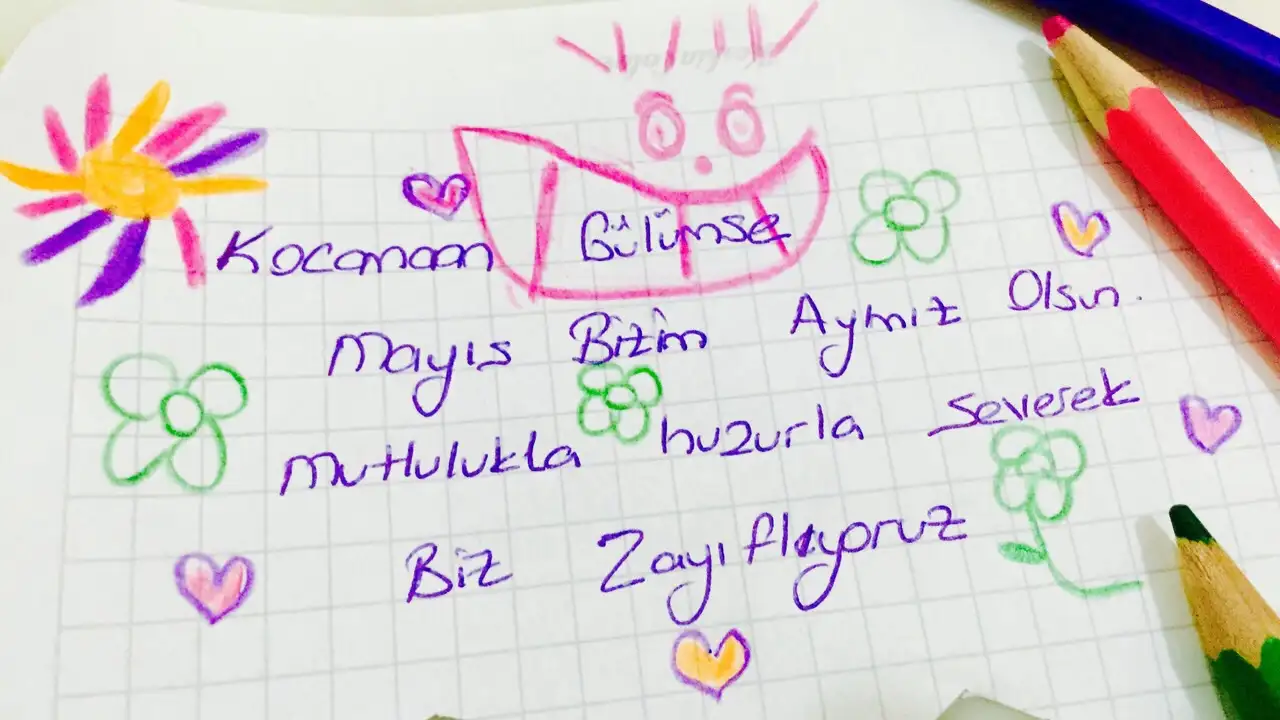 Kocamaan Gülümse
Mayıs Bizim Ayımız Olsun.
Mutlulukla huzurla Severek
Biz Zayıflıyoruz